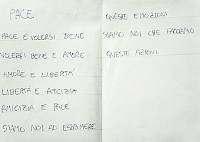 PACE
PACE E VOLERSI BENE
VOLERSI BENE E AMORE
AMORE E LIBERTA'
LIBERTA E AMICIZIA
AMICIZIA E PACE
SIAMO NOI AD ESPRIMERE
QUESTE EMOZIONI
SIAMO NOI CHE FACCIAMO
QUESTE AZIONI